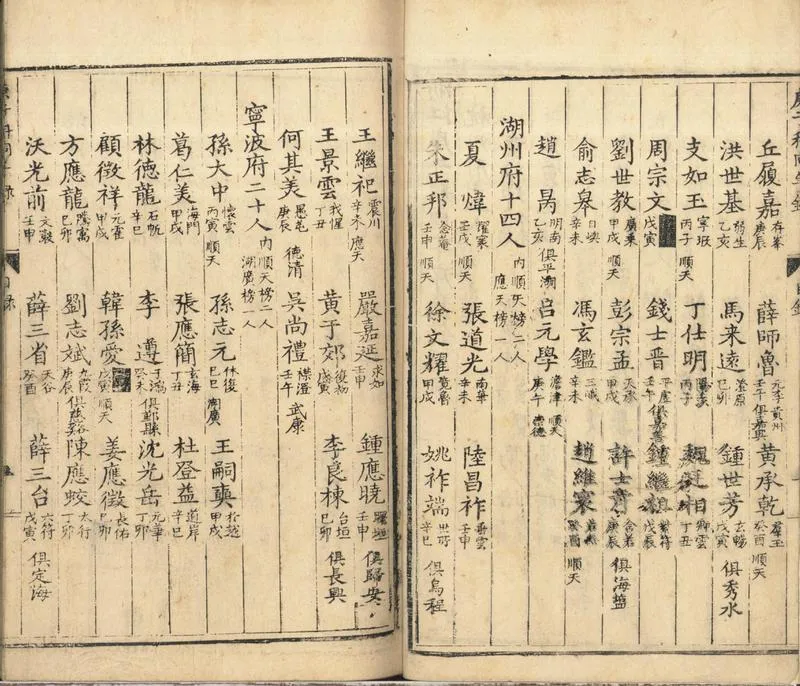 丘履嘉 存峯 庚辰 薛師魯 元季 貴州 壬午 俱嘉興 黄承乾 羣玉 癸酉 順天
洪世基 乙亥 馬来遠 巳卯 鍾世芳 玄暢 戊寅 俱秀水
支如玉 寧瑕 丙子 順天 丁仕明 丙子 魏廷相 卿雲 丁丑
周宗文 戊寅 錢士晋 壬午 俱嘉善 鍾繼 戊辰
劉世教 廣乗 甲戌 順天 彭宗孟 天承 甲戌 許士 庚辰 俱海鹽
俞志皋 辛未 馮玄鑑 三咸 辛未 趙維寰 癸酉 順天
趙昺 明南 乙亥 俱平湖 吕元學 澹津 順天 庚午 崇德
湖州府十四人 内順天榜二人 應天榜一人
夏煒 耀寰 壬戌 順天 張道光 南華 辛未 陸昌祚 壬申
朱正邦 念菴 壬申 順天 徐文耀 甲戌 姚祚端 辛巳 俱烏程
王繼祀 震川 辛未 應天 嚴嘉延 求如 壬午 鍾應曉 曙垣 壬申 俱歸安
王景雲 我惺 丁丑 黄于郊 後初 戊寅 李良棟 台垣 巳卯 俱長興
何其美 庚辰 德清 吴尚禮 襟澄 壬午 武康
寧波府二十人 内順天榜二人 湖廣榜一人
孫大中 懷雲 丙寅 順天 孫志元 休復 巳巳 湖廣 王嗣奭 於越 甲戌
葛仁美 海門 甲戌 張應簡 玄海 丁丑 杜登益 道岸 辛巳
林德龍 石帆 辛巳 李遵 于鴻 癸未 俱鄞縣 沈光岳 元華 丁卯
顧徵祥 元霍 甲戌 韓孫愛 戊寅 順天 姜應徵 長佑 巳卯
方應龍 騰寰 巳卯 劉志斌 九霞 庚辰 俱慈谿 陳應蛟 太行 丁卯
沃光前 文轂 壬申 薛三省 天谷 癸酉 薛三台 六符 戊寅 俱定海
目録